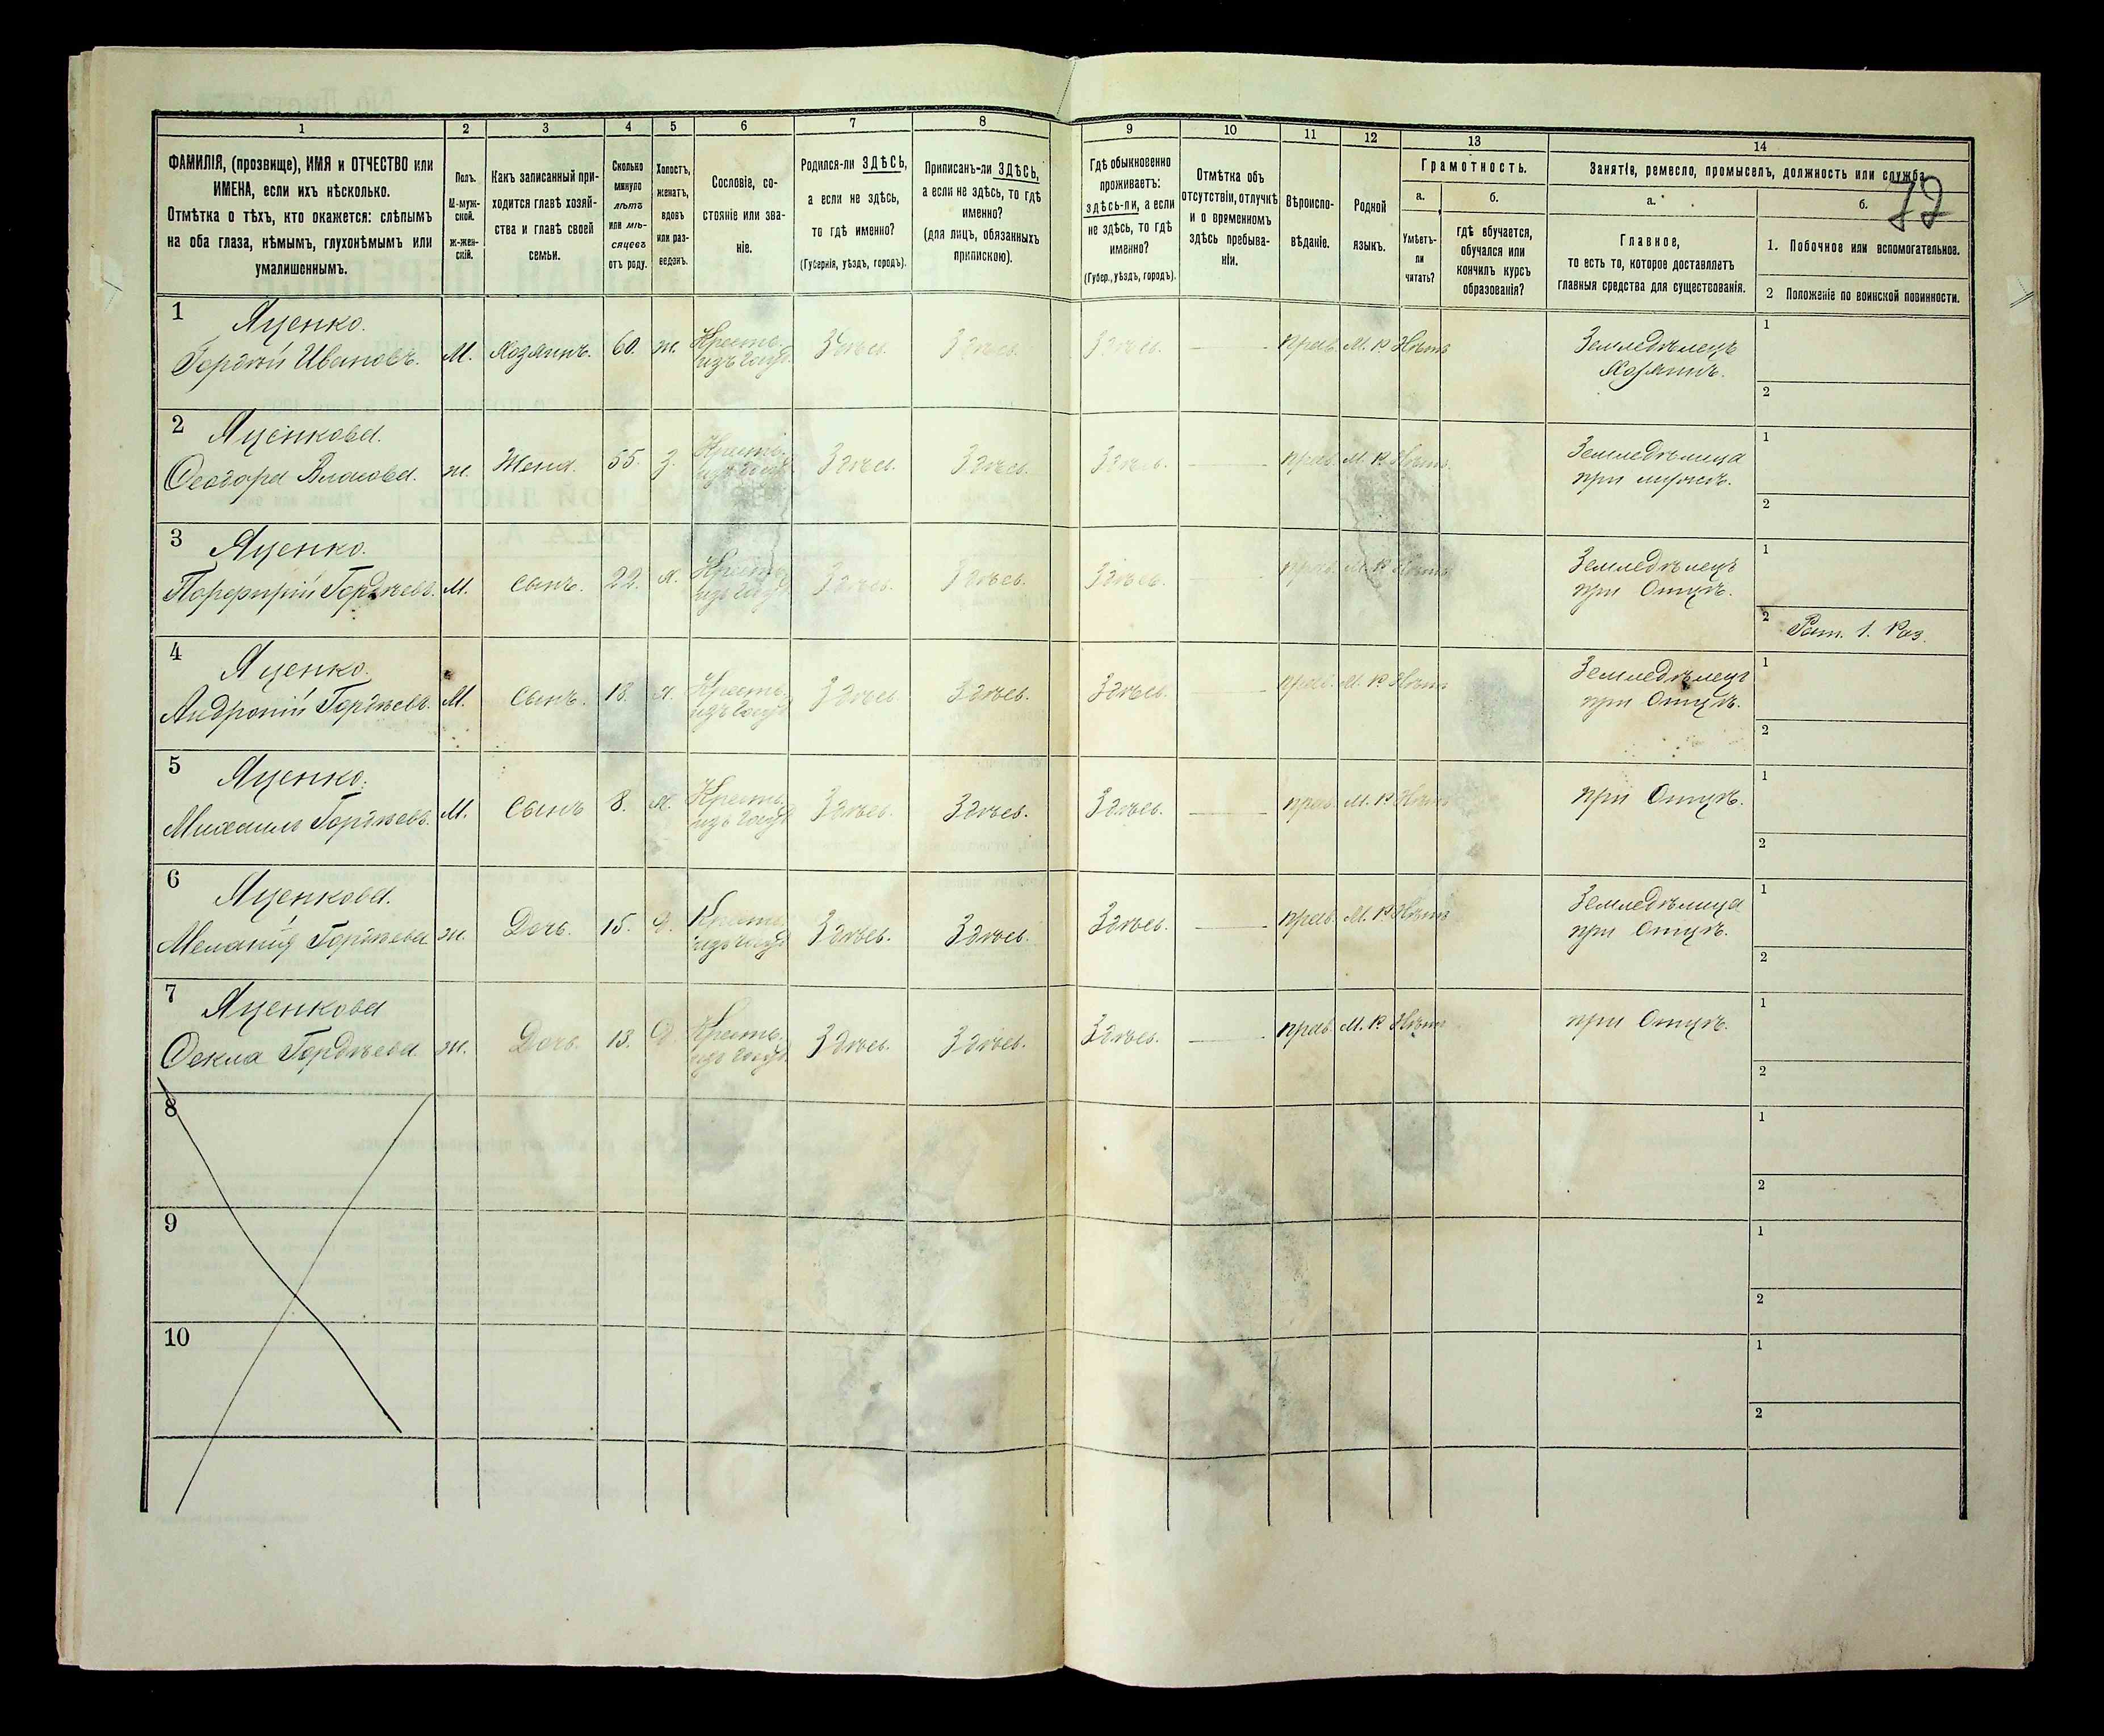 1 2 3 4 5 6 7 8 9 10 11 12 13 14
ФАМИЛІЯ, (прозвище), ИМЯ и ОТЧЕСТВО или
ИМЕНА, если ихъ нѣсколько.
Отмѣтка о тѣхъ, кто окажется: слѣпымъ
на оба глаза, нѣмымъ, глухонѣмымъ или
умалишеннымъ.
Полъ.
М-муж-
ской.
ж-жен-
скій.
Какъ записанный при-
ходится главѣ хозяй-
ства и главѣ своей
семьи.
Сколько
минуло
лѣтъ
или мѣ-
сяцевъ
отъ роду.
Холостъ,
женатъ,
вдовъ
или раз-
веденъ.
Сословіе, со-
стояніе или зва-
ніе.
Родился-ли ЗДѢСЬ,
а если не здѣсь,
то гдѣ именно?
(Губернія, уѣздъ, городъ).
Приписанъ-ли ЗДѢСЬ,
а если не здѣсь, то гдѣ
именно?
(для лицъ, обязанныхъ
припискою).
Гдѣ обыкновенно
проживаетъ:
здѣсь-ли, а если
не здѣсь, то гдѣ
именно?
(Губер., уѣздъ, городъ).
Отмѣтка объ
отсутствіи, отлучкѣ
и о временномъ
здѣсь пребыва-
ніи.
Вѣроиспо-
вѣданіе.
Родной
языкъ.
Грамотность.
а.
Умѣетъ-
ли
читать?
б.
гдѣ обучается,
обучался или
кончилъ курсъ
образованія?
Занятіе, ремесло, промыселъ, должность или служба
72
а.
Главное,
то есть то, которое доставляетъ
главныя средства для существованія.
б.
1. Побочное или вспомогательное.
2 Положеніе по воинской повинности.
1 Яценко.
Гордѣй Ивановъ. М. Хозяинъ. 60. ж. Крестъ. изъ госуд. Здѣсь. Здѣсь. Здѣсь. — прав. М. Р. Нѣтъ
Земледѣлецъ
Хозяинъ.
1
2
2 Яценкова.
Ѳеодора Власова. ж. Жена. 55. З. Крестъ. изъ госуд. Здѣсь. Здѣсь. Здѣсь. — прав. М. Р. Нѣтъ
Земледѣлица
при мужѣ.
1
2
3 Яценко.
Порфирій Гордѣевъ. М. Сынъ. 22. Х. Крестъ. изъ госуд. Здѣсь. Здѣсь. Здѣсь. — прав. М. Р. Нѣтъ
Земледѣлецъ
при Отцѣ.
1
2 Рат. 1. Раз.
4 Яценко.
Андроній Гордѣевъ. М. Сынъ. 18. Х. Крестъ. изъ госуд. Здѣсь. Здѣсь. Здѣсь. — прав. М. Р. Нѣтъ
Земледѣлецъ
при Отцѣ.
1
2
5 Яценко.
Михаилъ Гордѣевъ. М. Сынъ 8. Х. Крестъ. изъ госуд. Здѣсь. Здѣсь. Здѣсь. — прав. М. Р. Нѣтъ
при Отцѣ.
1
2
6 Яценкова.
Меланія Гордѣева ж. Дочь. 15. Д. Крестъ. изъ госуд. Здѣсь. Здѣсь. Здѣсь. — прав. М. Р. Нѣтъ
Земледѣлица
при Отцѣ.
1
2
7 Яценкова
Ѳекла Гордѣева ж. Дочь. 13. Д. Крестъ. изъ госуд. Здѣсь. Здѣсь. Здѣсь. — прав. М. Р. Нѣтъ
при Отцѣ.
1
2
8
1
2
9
1
2
10
1
2